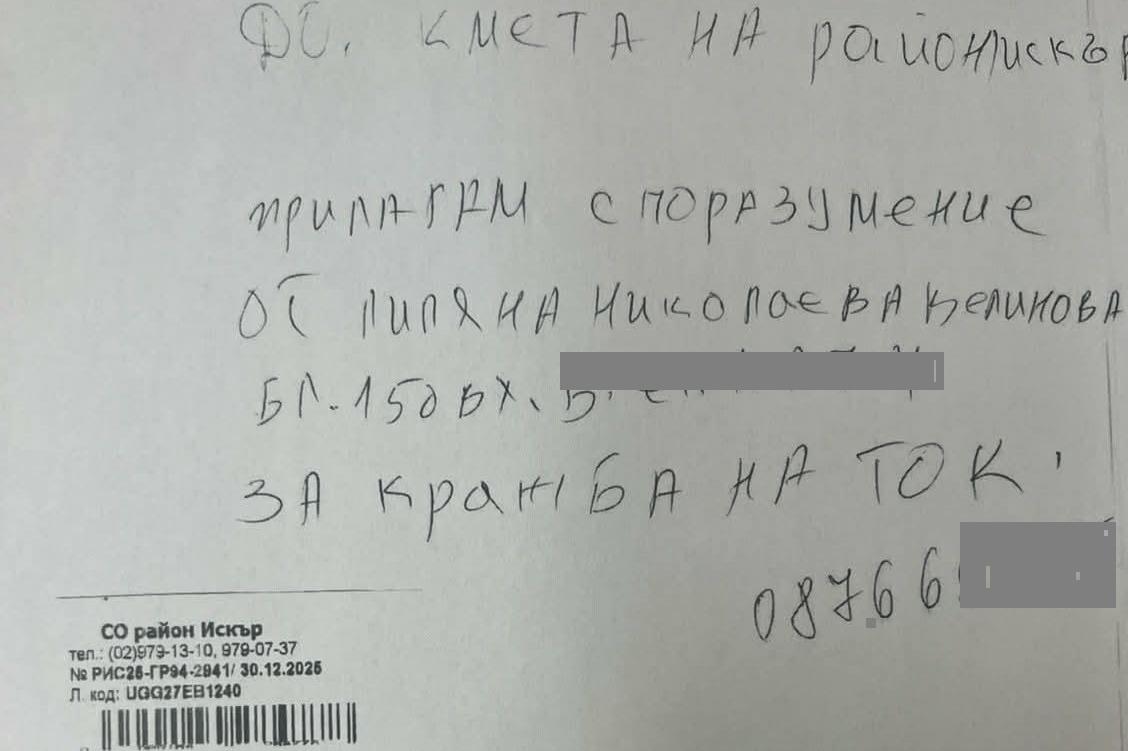 ДО. КМЕТА НА район/искър
прилагам споразумение
от Лиляна Николаева Велинова
БЛ. 150 ВХ. Б.
ЗА кражБА НА ТОК.
08766
СО район Искър
тел.: (02)979-13-10, 979-07-37
№ РИС25-ГР94-2941/ 30.12.2025
Л. код: UGG27EB1240